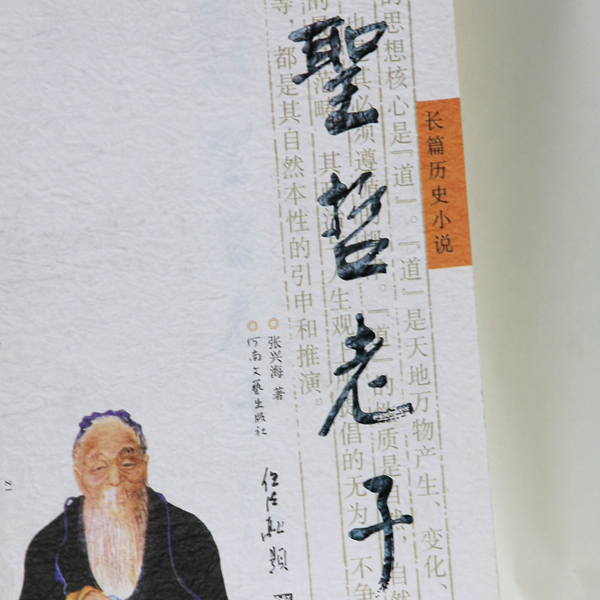 长篇历史小说
聖哲老子
的思想核心是『道』。『道』是天地万物产生、变化、
其必须遵循的 。『道』的性质是自然，自然
范畴 其 人生观 倡的无为、不争
等，都是其自然本性的引申和推演。
张兴海 著
河南文艺出版社
任法融题